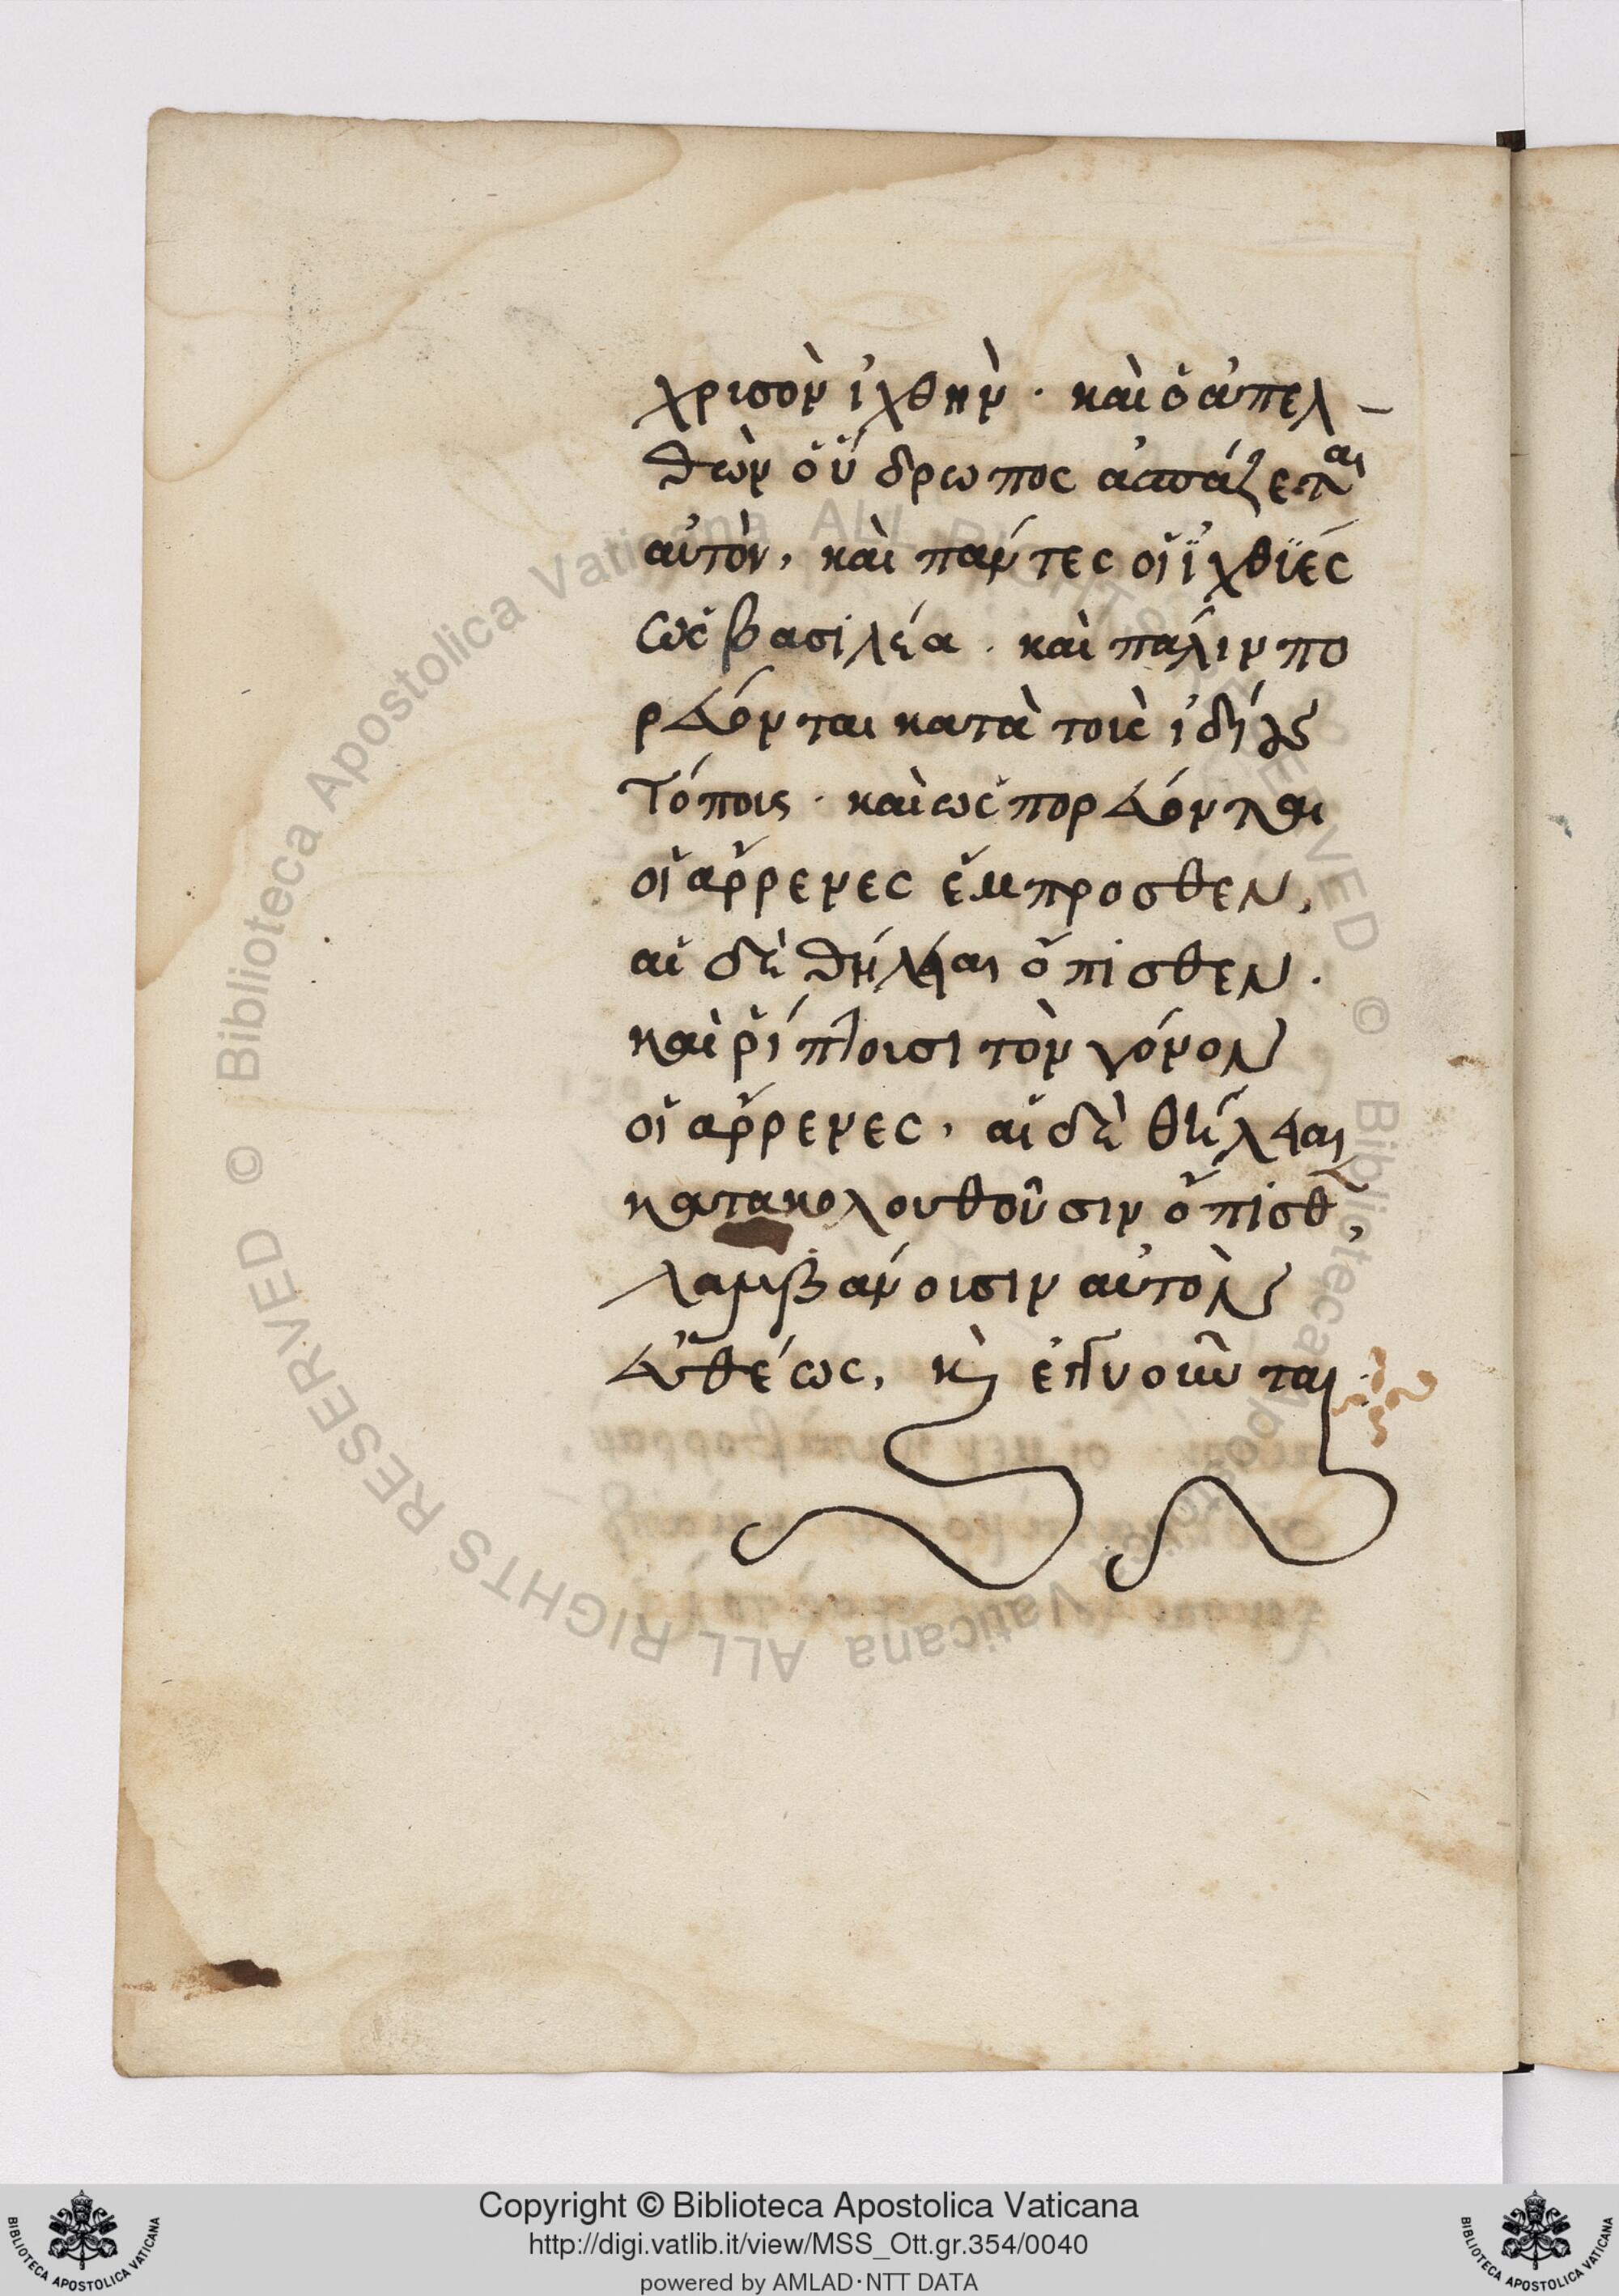 χρισὸν ἰχθὴν · καὶ ὁ ἀπελ –
θὼν ὁ ὕδρωπος ἀσπάζεται
αὐτὸν, καὶ πάντες οἱ ἰχθύες
ὡς βασιλέα · καὶ πάλιν πο
ρεύονται κατὰ τοὺς ἰδίους
τόποις · καὶ ὡς πορεύονται
οἱ ἄρρενες ἔμπροσθεν,
αἱ δὲ θήλειαι ὄπισθεν ·
καὶ ῥίπτουσι τὸν γόνον
οἱ ἄρρενες, αἱ δὲ θήλειαι
κατακολουθοῦσιν ὄπισθεν,
λαμβάνουσιν αὐτὸν
εὐθέως, καὶ ἐγγυοῦνται
© Biblioteca Apostolica Vaticana ALL RIGHTS RESERVED
© Biblioteca Apostolica Vaticana ALL RIGHTS RESERVED
Copyright © Biblioteca Apostolica Vaticana
http://digi.vatlib.it/view/MSS_Ott.gr.354/0040
powered by AMLAD·NTT DATA
BIBLIOTECA APOSTOLICA VATICANA
BIBLIOTECA APOSTOLICA VATICANA